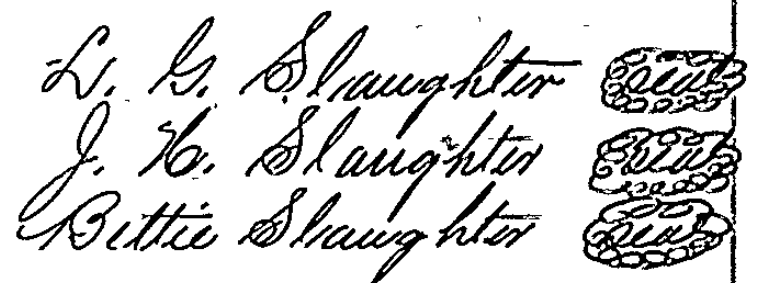 L. G. Slaughter seal
J. H. Slaughter seal
Bettie Slaughter seal